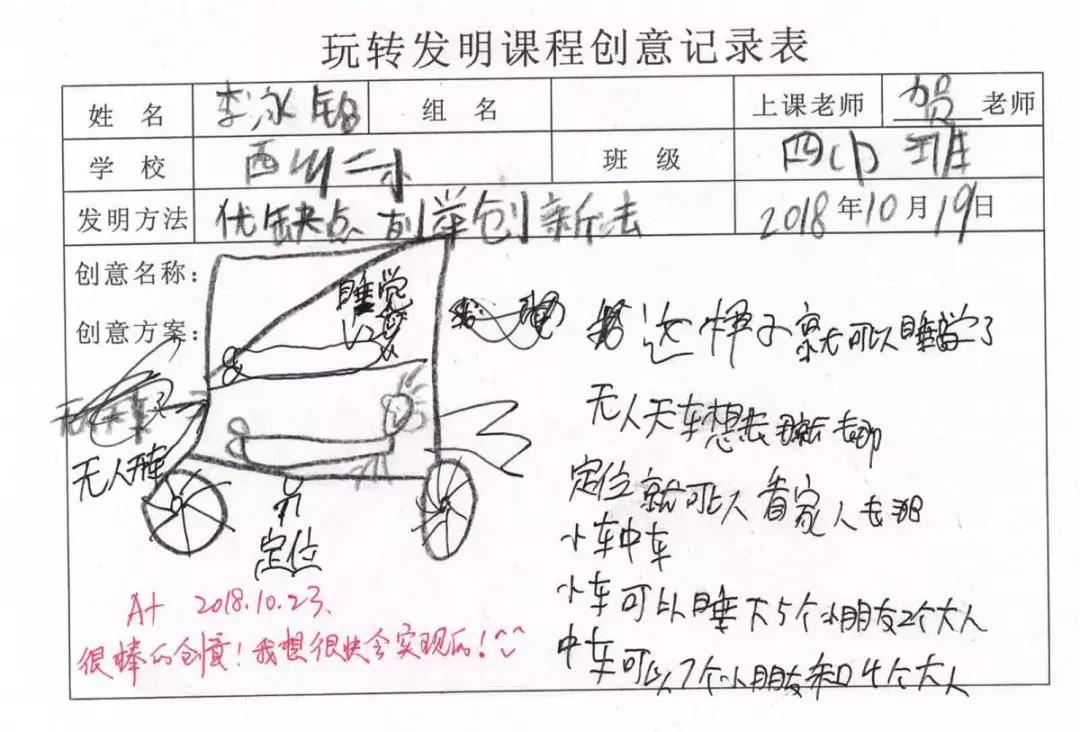 玩转发明课程创意记录表
姓 名 李泳 组 名 上课老师 贺 老师
学 校 西川二小 班 级 四(1)班
发明方法 优缺点列举创新法 2018年10月19日
创意名称：
创意方案：
睡觉
这样子就可以睡觉了
无人天车想去哪就去哪
无人开车
定位就可以人看家人去哪
定位
小车中车
小车可以睡下5个小朋友2个大人
中车可以7个小朋友和4个大人
A+ 2018.10.23.
很棒的创意！我想很快会实现的！^^